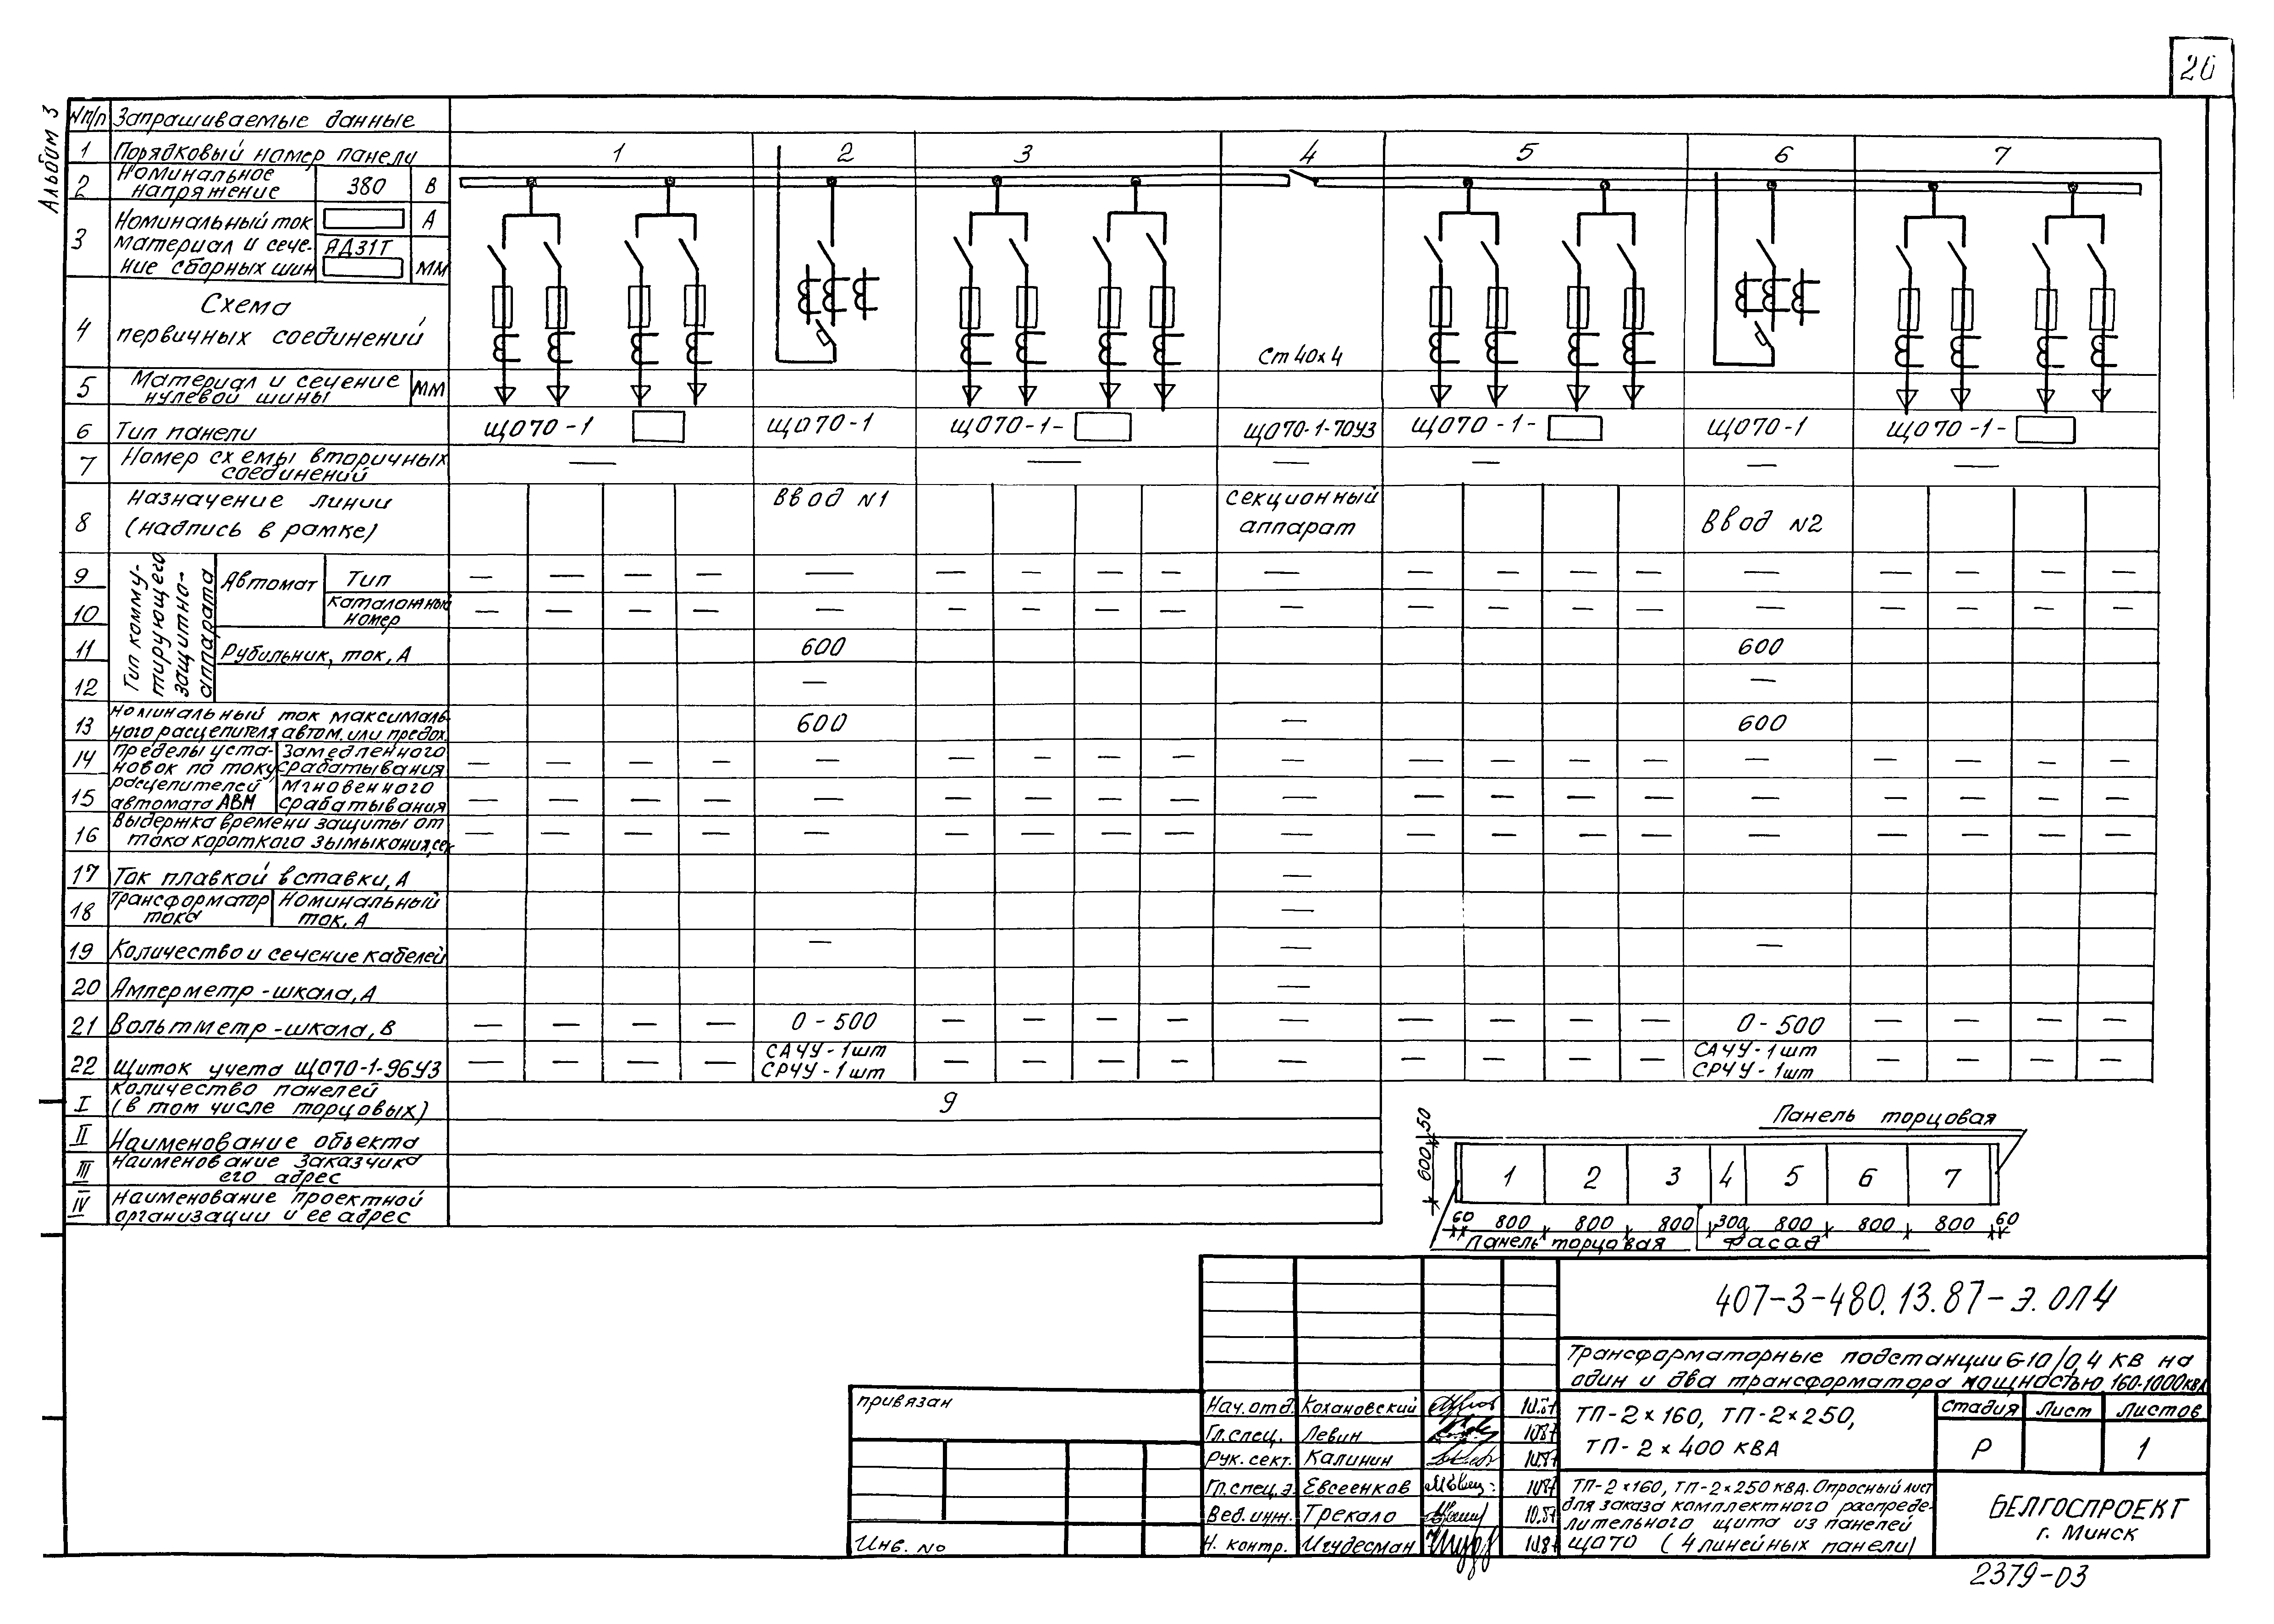 26
Альбом 3
№п/п Запрашиваемые данные
1 Порядковый номер панели 1 2 3 4 5 6 7
2 Номинальное напряжение 380 В
3 Номинальный ток А
материал и сече- ЯД31Т
ние сборных шин мм
4 Схема
первичных соединений
Ст 40х4
5 Материал и сечение
нулевой шины мм
6 Тип панели ЩО70-1 ЩО70-1 ЩО70-1- ЩО70-1-70У3 ЩО70-1- ЩО70-1 ЩО70-1-
7 Номер схемы вторичных
соединений — — — — — —
8 Назначение линии
(надпись в рамке)
Ввод №1
секционный
аппарат
Ввод №2
Тип комму-
тирующего
защитно-
аппарата
9 Автомат Тип — — — — — — — — — — — — — — — — — — —
10 Каталожный
номер — — — — — — — — — — — — — — — — — — —
11 Рубильник, ток, А 600 600
12 — —
13 Номинальный ток максималь-
ного расцепителя автом. или предох. 600 — 600
Пределы уста-
новок по току
расцепителей
автомата АВМ
14 Замедленного
срабатывания — — — — — — — — — — — — — — — — — — —
15 Мгновенного
срабатывания — — — — — — — — — — — — — — — — — — —
16 Выдержка времени защиты от
тока короткого зымыкания, сек — — — — — — — — — — — — — — — — — — —
17 Ток плавкой вставки, А —
18 Трансформатор
тока Номинальный
ток, А —
19 Количество и сечение кабелей — — —
20 Амперметр - шкала, А —
21 Вольтметр - шкала, В — — — — 0 - 500 — — — — — — — — — 0 - 500 — — — —
22 Щиток учета ЩО70-1-96У3 — — — — САЧУ - 1шт — — — — — — — — — САЧУ - 1шт — — — —
СРЧУ - 1шт СРЧУ - 1шт
I Количество панелей
(в том числе торцовых) 9
II Наименование объекта
III Наименование заказчика
его адрес
IV Наименование проектной
организации и ее адрес
Панель торцовая
50
600
1 2 3 4 5 6 7
60 800 800 800 300 800 800 800 60
Панель торцовая Фасад
407-3-480.13.87-Э.ОЛ4
Трансформаторные подстанции 6-10/0,4 кВ на
один и два трансформатора мощностью 160-1000кВА
ТП-2×160, ТП-2×250,
ТП-2×400 кВА
Стадия Лист Листов
Р 1
ТП-2×160, ТП-2×250 кВА. Опросный лист
для заказа комплектного распреде-
лительного щита из панелей
ЩО70 (4 линейных панели)
БЕЛГОСПРОЕКТ
г. Минск
Нач. отд. Кохановский 10.87
Гл. спец. Левин 10.87
Рук. сект. Калинин 10.87
Гл. спец. э. Евсеенков 10.87
Вед. инж. Трекало 10.87
Н. контр. Игудесман 10.87
привязан
Инв. №
2379-03